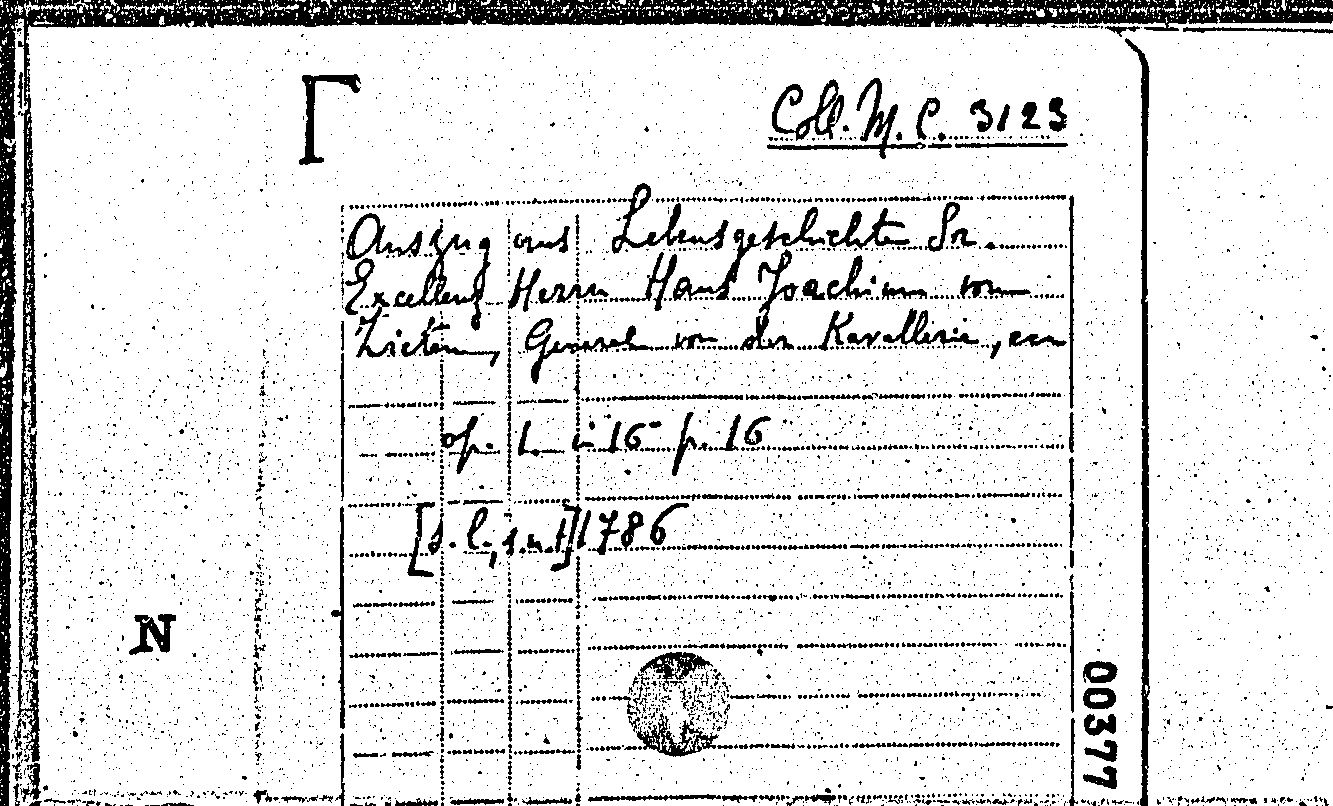 Coll. M. C. 3123
Auszug aus Lebensgeschichte Sr.
Excellenz Herrn Hans Joachim von
Zieten, General von der Kavallerie,
op. 1. in 16 p. 16
[s.l., s.n.t] 1786
N
00377